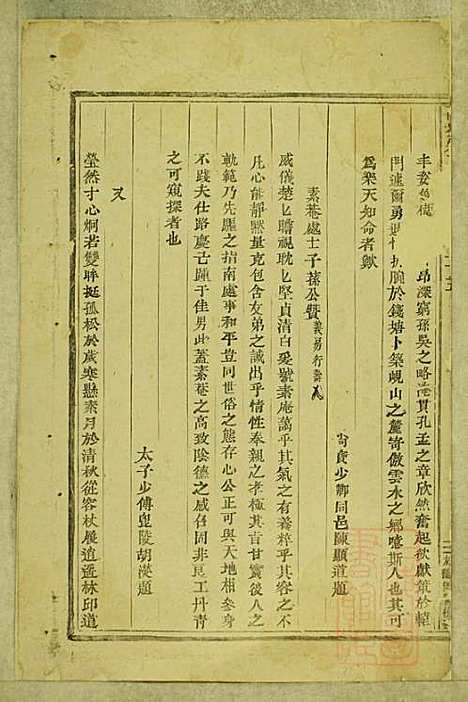 昂深窮孫吳之略淹貫孔孟之章欣然奮起欲獻策於轅
門遽爾勇退 扼腕於錢塘卜築峴山之麓寄傲雲水之鄉噫斯人也其可
爲樂天知命者歟
尙寶少卿同邑陳顯道題
素菴處士子蓀公贊
威儀楚匕瞻視耽匕堅貞清白爰號素庵藹乎其氣之有養粹乎其情之不
凡心能靜黙量克包含友弟之誠出乎情性奉親之孝極其旨甘實後人之
軌範乃先驅之指南處事和平豈同世俗之態存心公正可與天地相參身
不踐夫仕路慶已踵于佳男此蓋素菴之高致陰德之感召固非良工丹青
之可窺探者也
太子少傅毘陵胡濙題
又
瑩然寸心炯若雙眸挺孤松於歲寒懸素月於清秋從容杖履逍遙林邱道